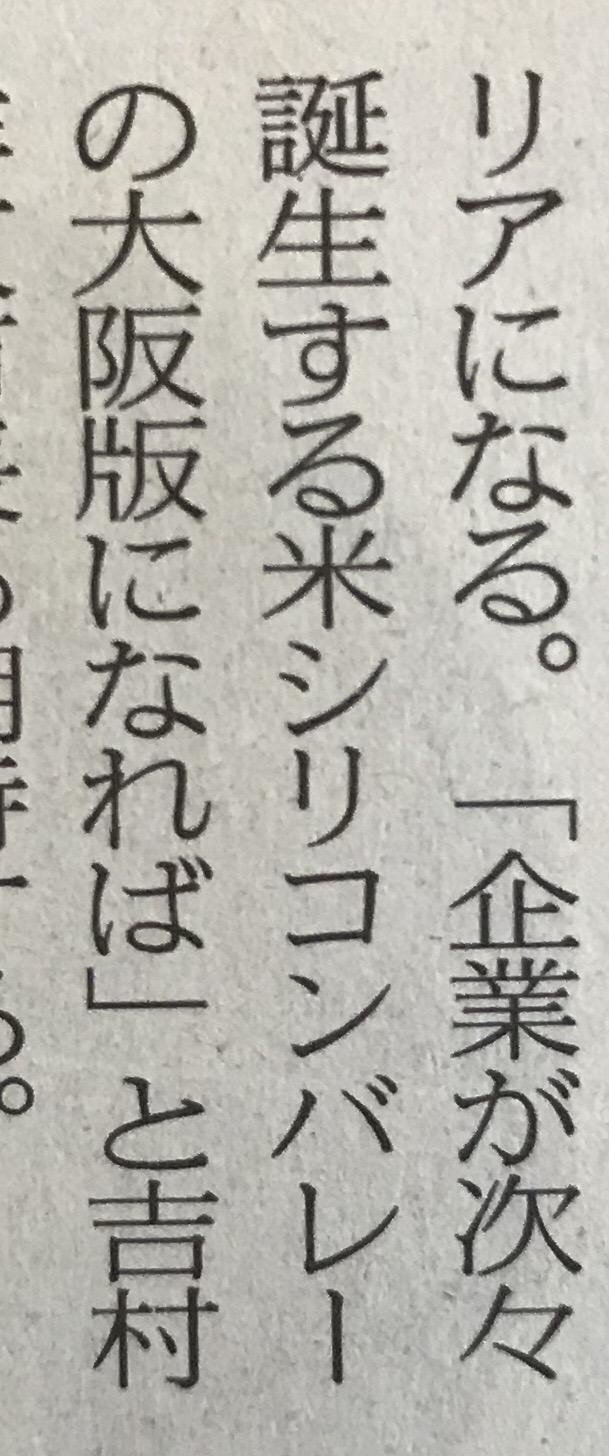 リアになる。「企業が次々
誕生する米シリコンバレー
の大阪版になれば」と吉村